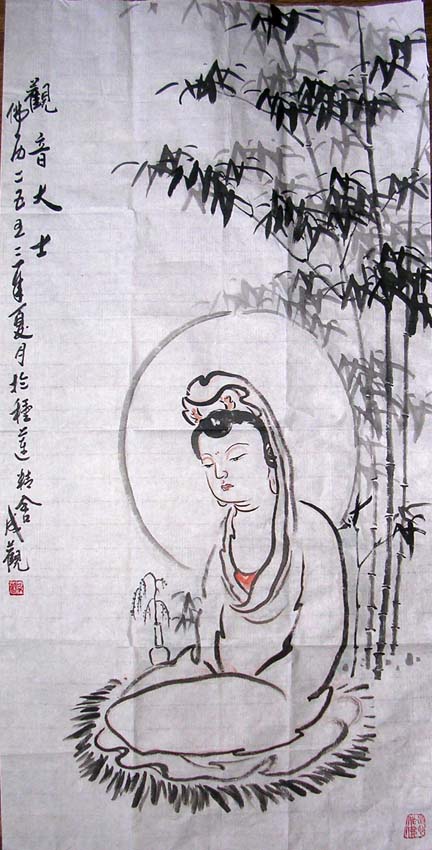 觀音大士
佛历二五五二年夏月於種蓮精舍成觀